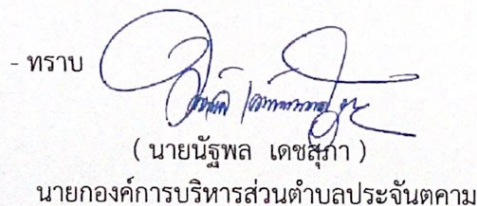 - ทราบ
( นายนัฐพล เดชสุภา )
นายกองค์การบริหารส่วนตำบลประจันตคาม